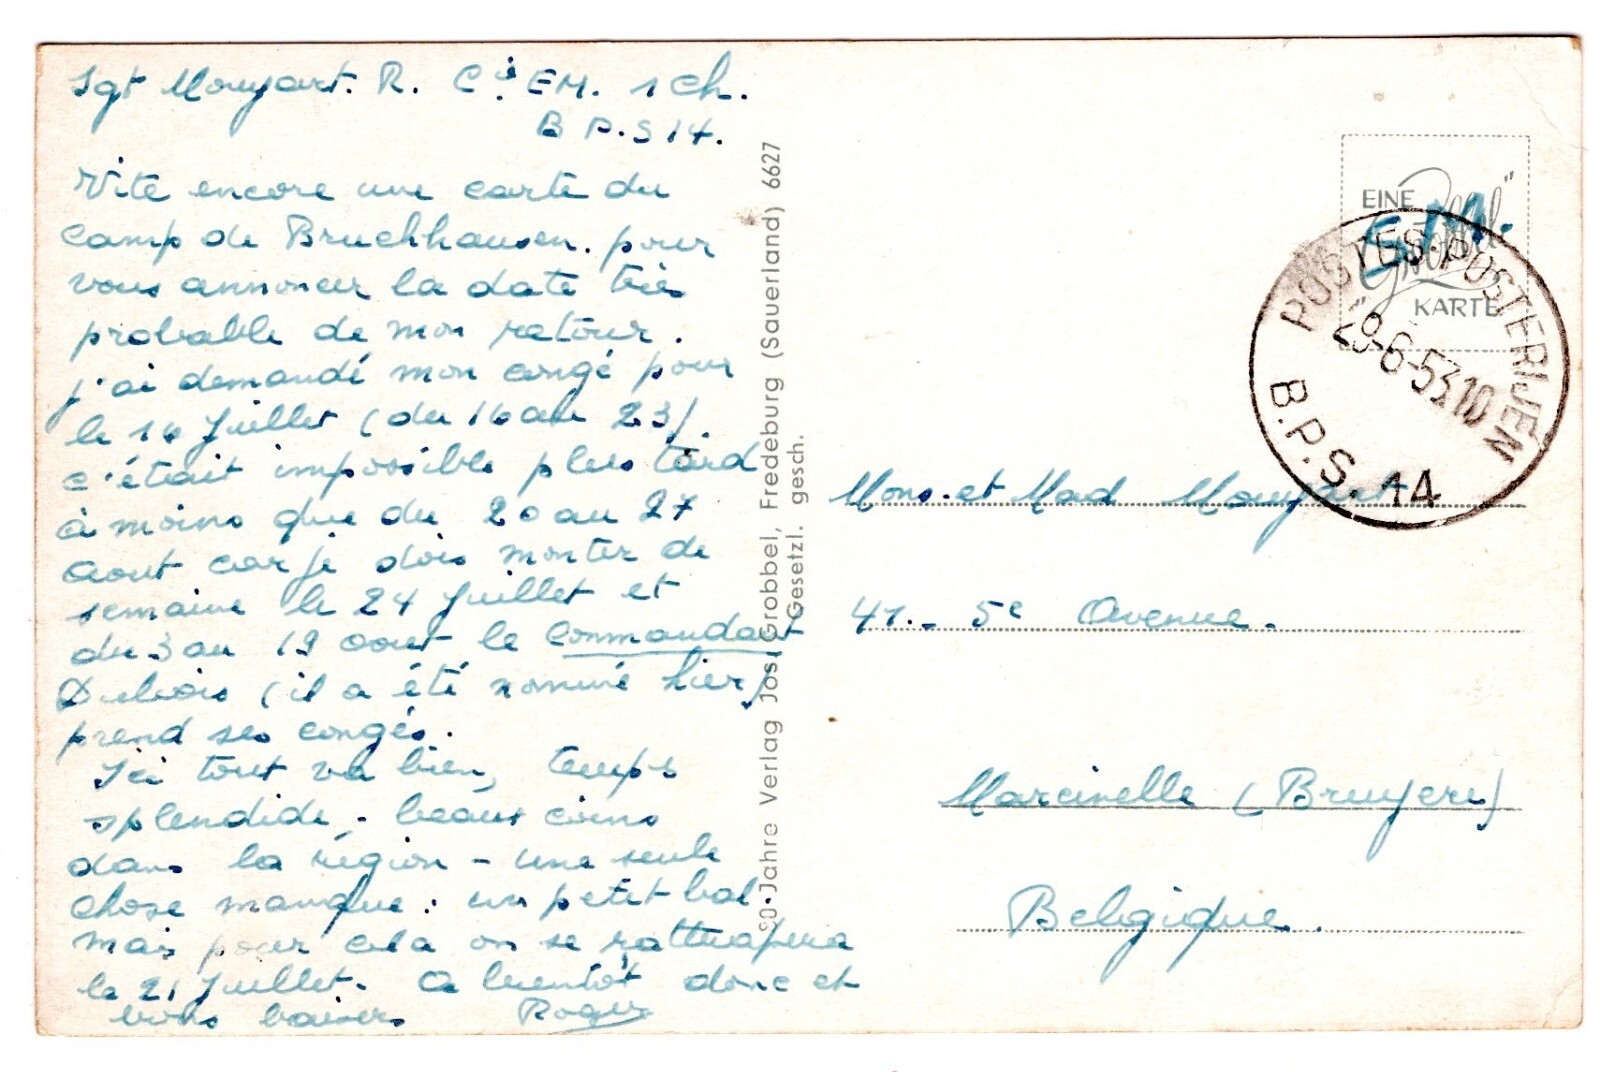 Sgt Mouyart. R. Cie EM. 1 Ch.
B P.S 14.
Vite encore une carte du
camp de Bruchhausen. pour
vous annoncer la date très
probable de mon retour.
j'ai demandé mon congé pour
le 16 Juillet (du 16 au 23).
c'était impossible plus tard
à moins que du 20 au 27
aout car je dois monter de
semaine le 24 Juillet et
du 3 au 19 aout le Commandant
Dubois (il a été nommé hier)
prend ses congés.
Ici tout va bien, temps
splendide, - beaux coins
dans la région - une seule
chose manque : un petit bal.
mais pour cela on se rattrapera
le 21 Juillet. A bientôt donc et
bons baisers Roger
-Jahre Verlag Jos. Grobbel, Fredeburg (Sauerland) 6627
Gesetzl. gesch.
EINE
Grobbel"
KARTE
S.M.
POSTES-POSTERIJEN
29-6-53.10
B.P.S. 14
Mons. et Mad Mouyart
41.- 5e Avenue.
Marcinelle (Bruyere)
Belgique.